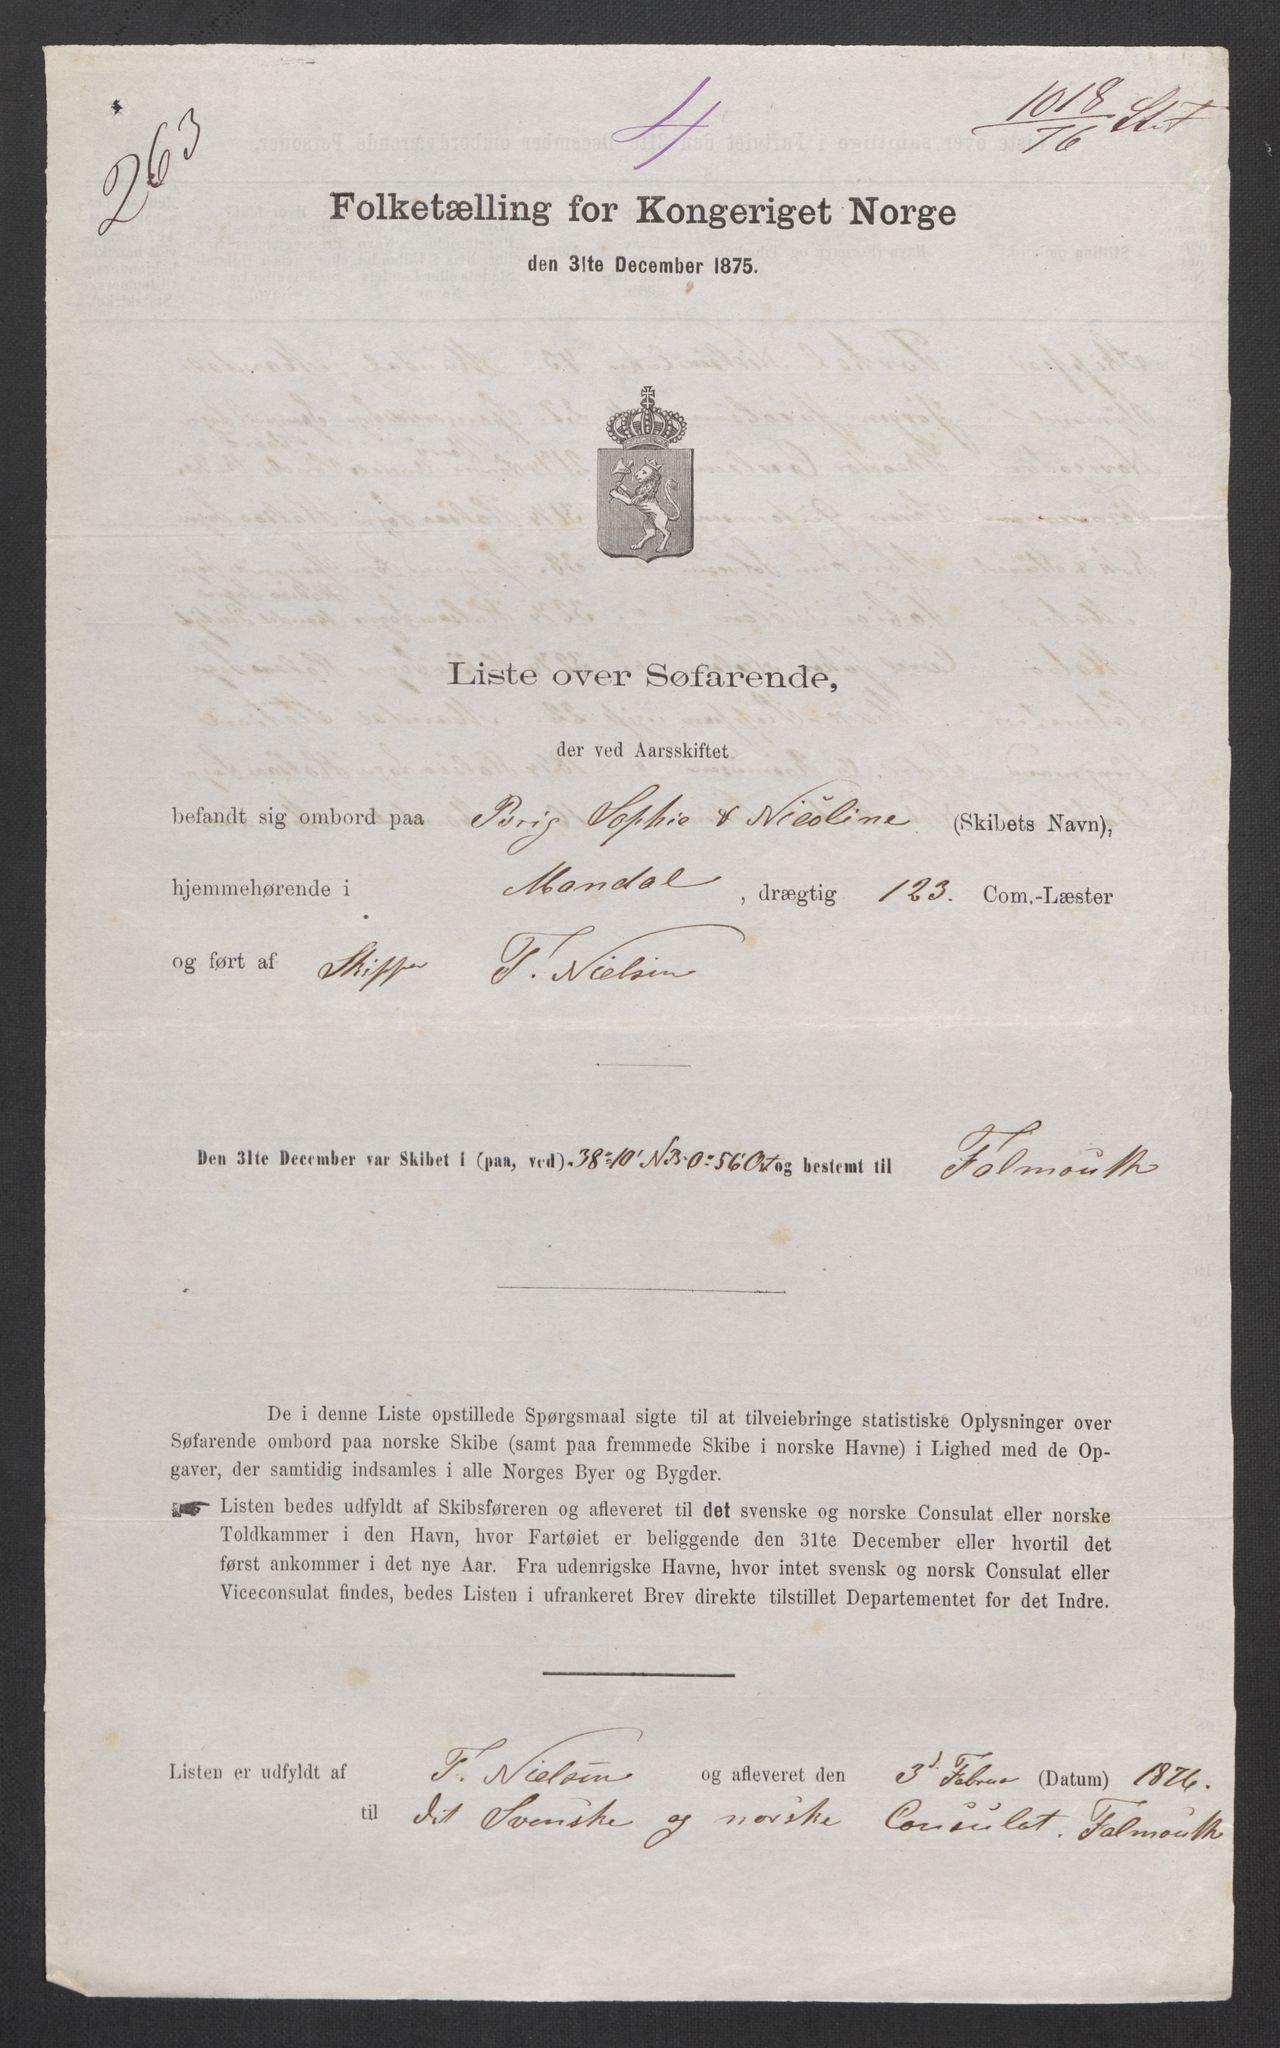 263
4
1018/76 Stat
Folketælling for Kongeriget Norge
den 31te December 1875.
Liste over Søfarende,
der ved Aarsskiftet
befandt sig ombord paa Brig Sophie & Nicoline (Skibets Navn),
hjemmehørende i Mandal, drægtig 123. Com.-Læster
og ført af Skipper T. Nielsen
Den 31te December var Skibet i (paa, ved) 38°10' N Br 0°56' Ost og bestemt til Falmouth
De i denne Liste opstillede Spørgsmaal sigte til at tilveiebringe statistiske Oplysninger over
Søfarende ombord paa norske Skibe (samt paa fremmede Skibe i norske Havne) i Lighed med de Op-
gaver, der samtidig indsamles i alle Norges Byer og Bygder.
☛ Listen bedes udfyldt af Skibsføreren og afleveret til det svenske og norske Consulat eller norske
Toldkammer i den Havn, hvor Fartøiet er beliggende den 31te December eller hvortil det
først ankommer i det nye Aar. Fra udenrigske Havne, hvor intet svensk og norsk Consulat eller
Viceconsulat findes, bedes Listen i ufrankeret Brev direkte tilstillet Departementet for det Indre.
Listen er udfyldt af T. Nielsen og afleveret den 3d Februar (Datum) 1876.
til det Svenske og norske Consulat. Falmouth